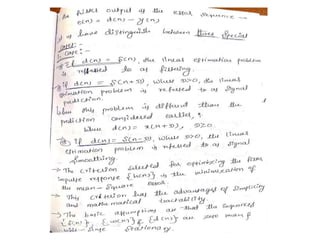 the filter output is the error sequence →
e(n) = d(n) - y(n)
have distinguish between three special
case:-
If d(n) = s(n), the linear estimation problem
is referred to as filtering.
If d(n) = s(n+D), where D>0, the linear
estimation problem is referred to as signal
prediction.
this problem is different than the
prediction considered earlier,
where d(n) = x(n+D), D≥0.
If d(n) = s(n-D), where D>0, the linear
estimation problem is referred to as signal
Smoothing.
→ The criterion selected for optimizing the filter
impulse response {h(n)} is the minimization of
the mean-square error.
→ This criterion has the advantages of simplicity
and mathematical tractability.
→ The basic assumptions are that the sequences
{s(n)}, {w(n)} & {d(n)} are zero mean &
wide-sense stationary.